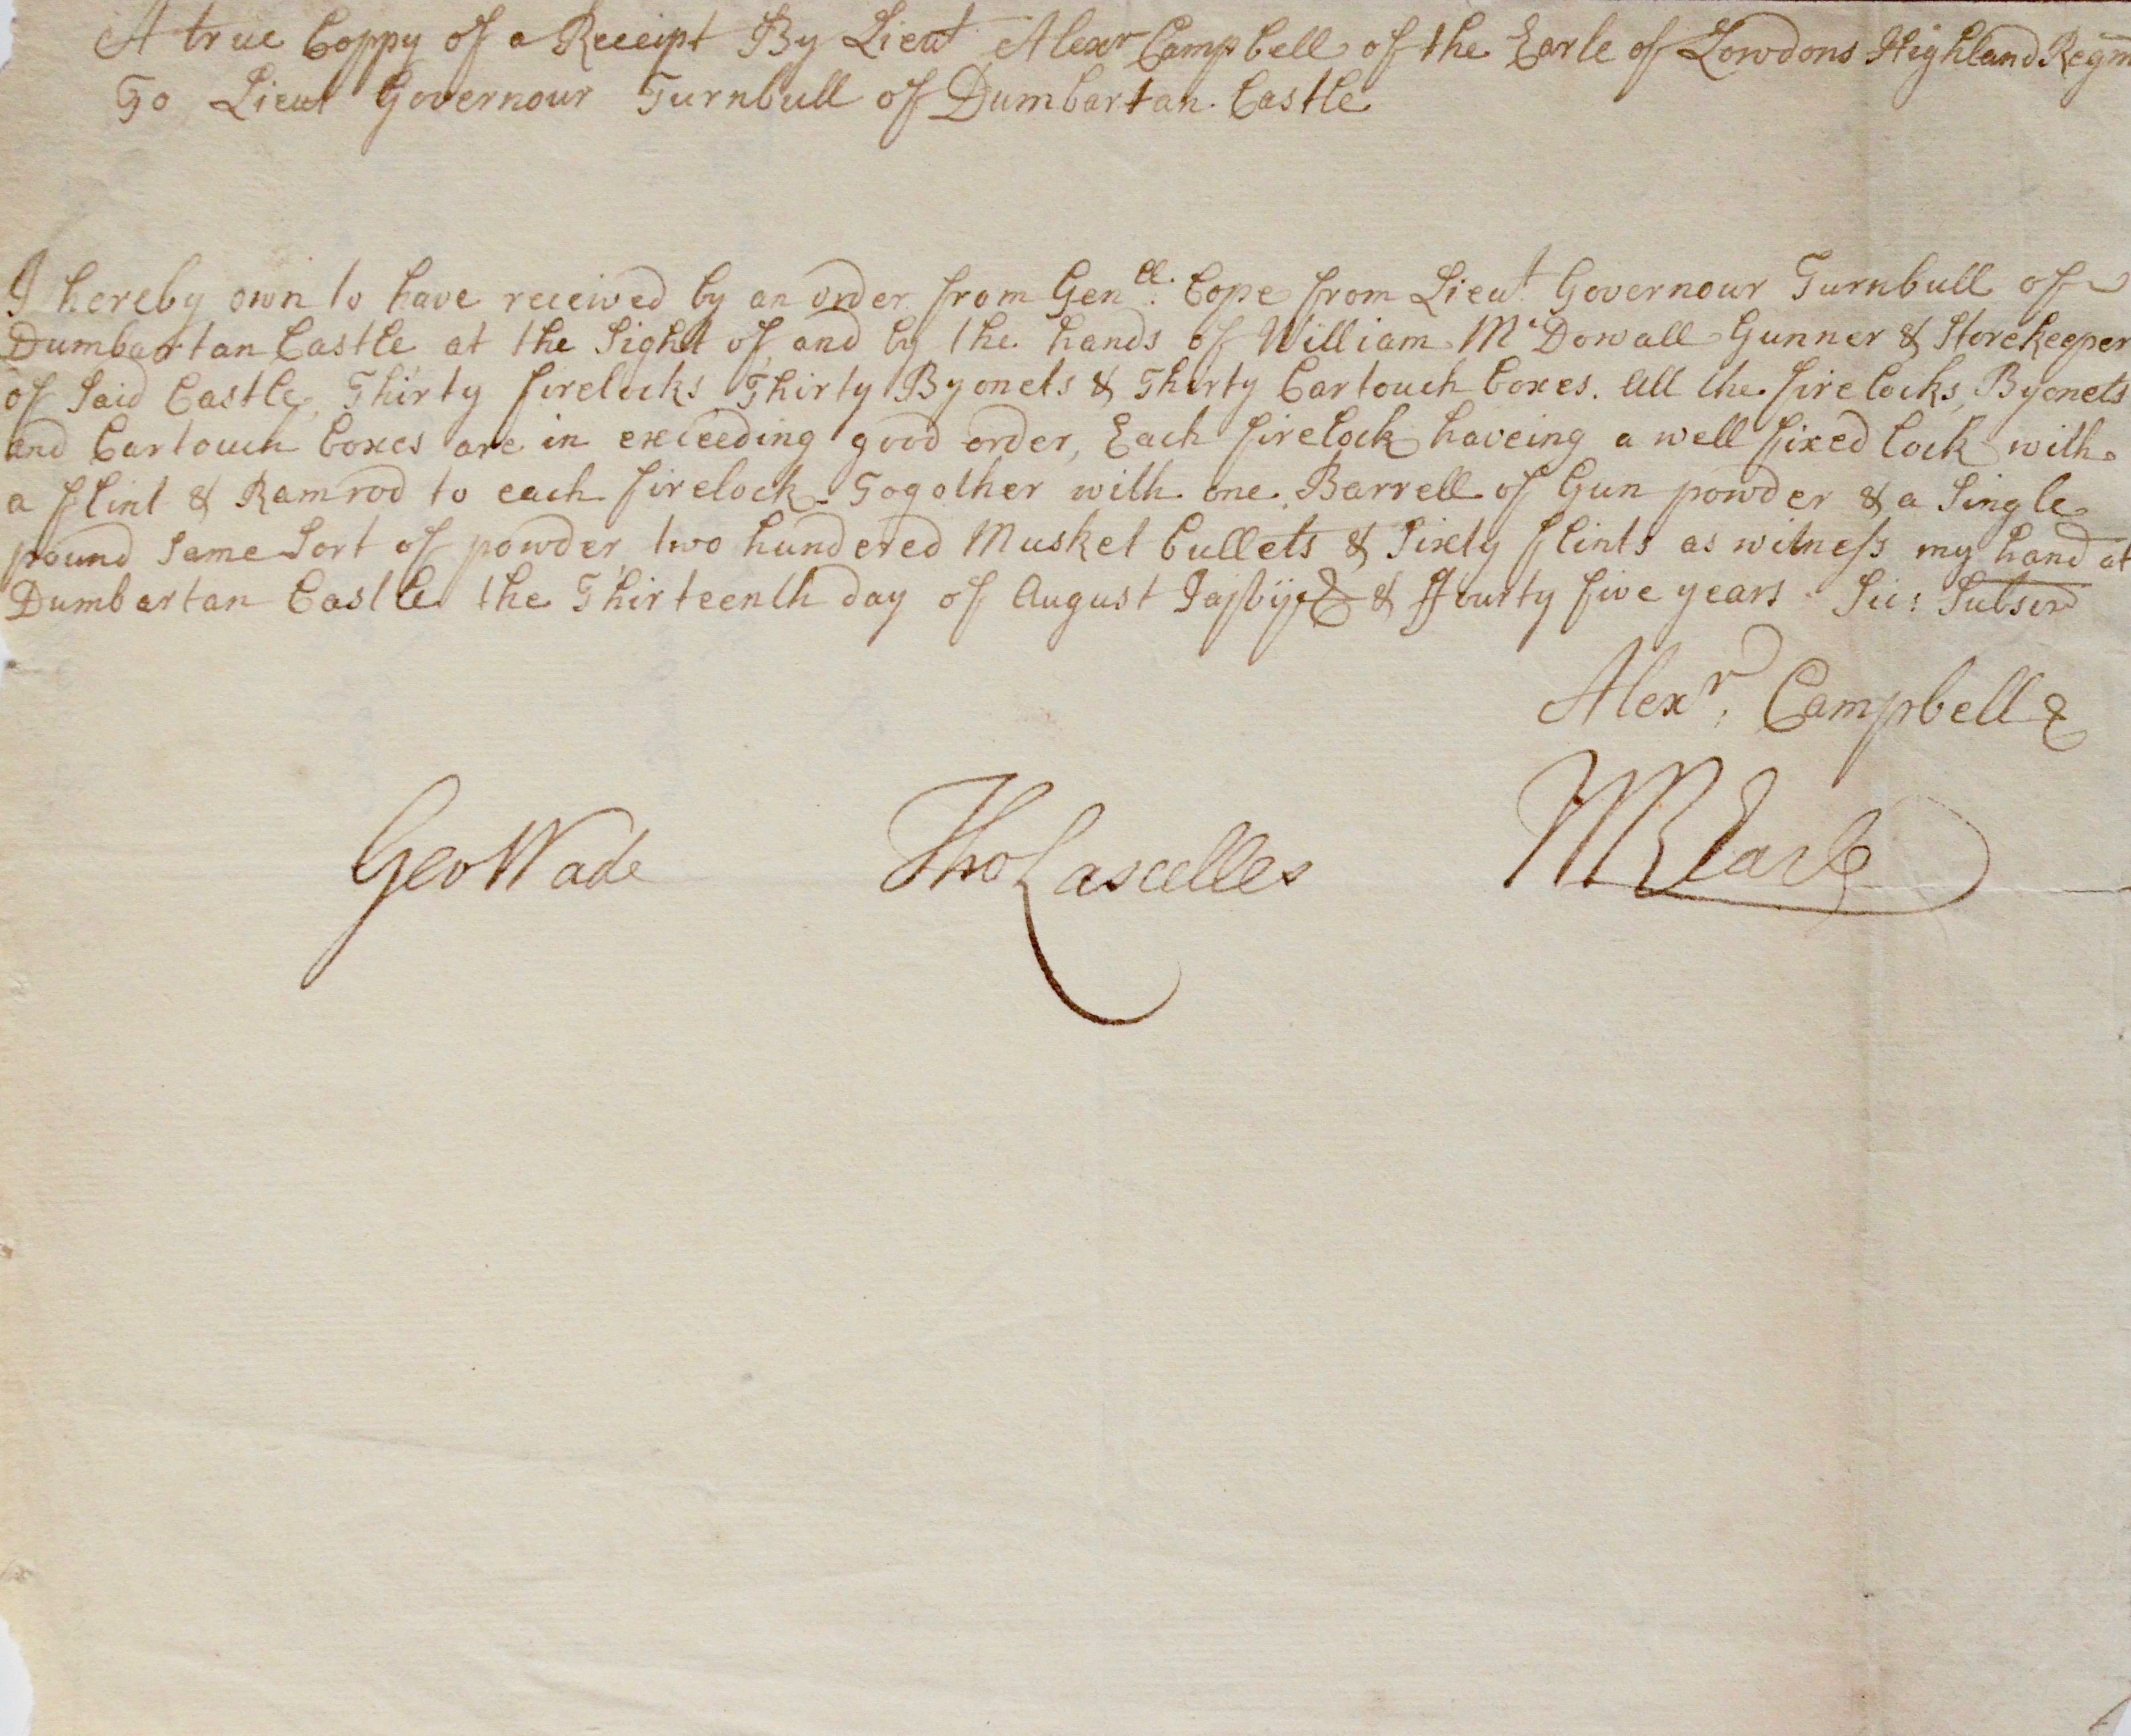 A true Coppy of a Receipt By Lieut Alexr Campbell of the Earle of Lowdons Highland Regm
To Lieut Governour Turnbull of Dumbartan Castle
I hereby own to have received by an order from Genll: Cope from Lieut Governour Turnbull of
Dumbartan Castle at the Sight of, and by the hands of William McDowall Gunner & Storekeeper
of Said Castle, Thirty firelocks Thirty Byonets & Thirty Cartouch boxes. All the firelocks, Byonets
and Cartouch boxes are in exceeding good order, Each firelock haveing a well fixed lock with
a flint & Ramrod to each firelock. Togother with one Barrell of Gun powder & a Single
pound Same Sort of powder, two hundered Musket bullets & Sixty flints as witneſs my hand at
Dumbartan Castle the Thirteenth day of August Jajvij & ffourty five years Sic: Subscrd
Alexr. Campbell
Geo Wade
Tho Lascelles
W R Earle